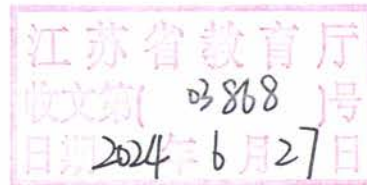 江苏省教育厅
收文第( 03868 )号
日期2024年6月27日